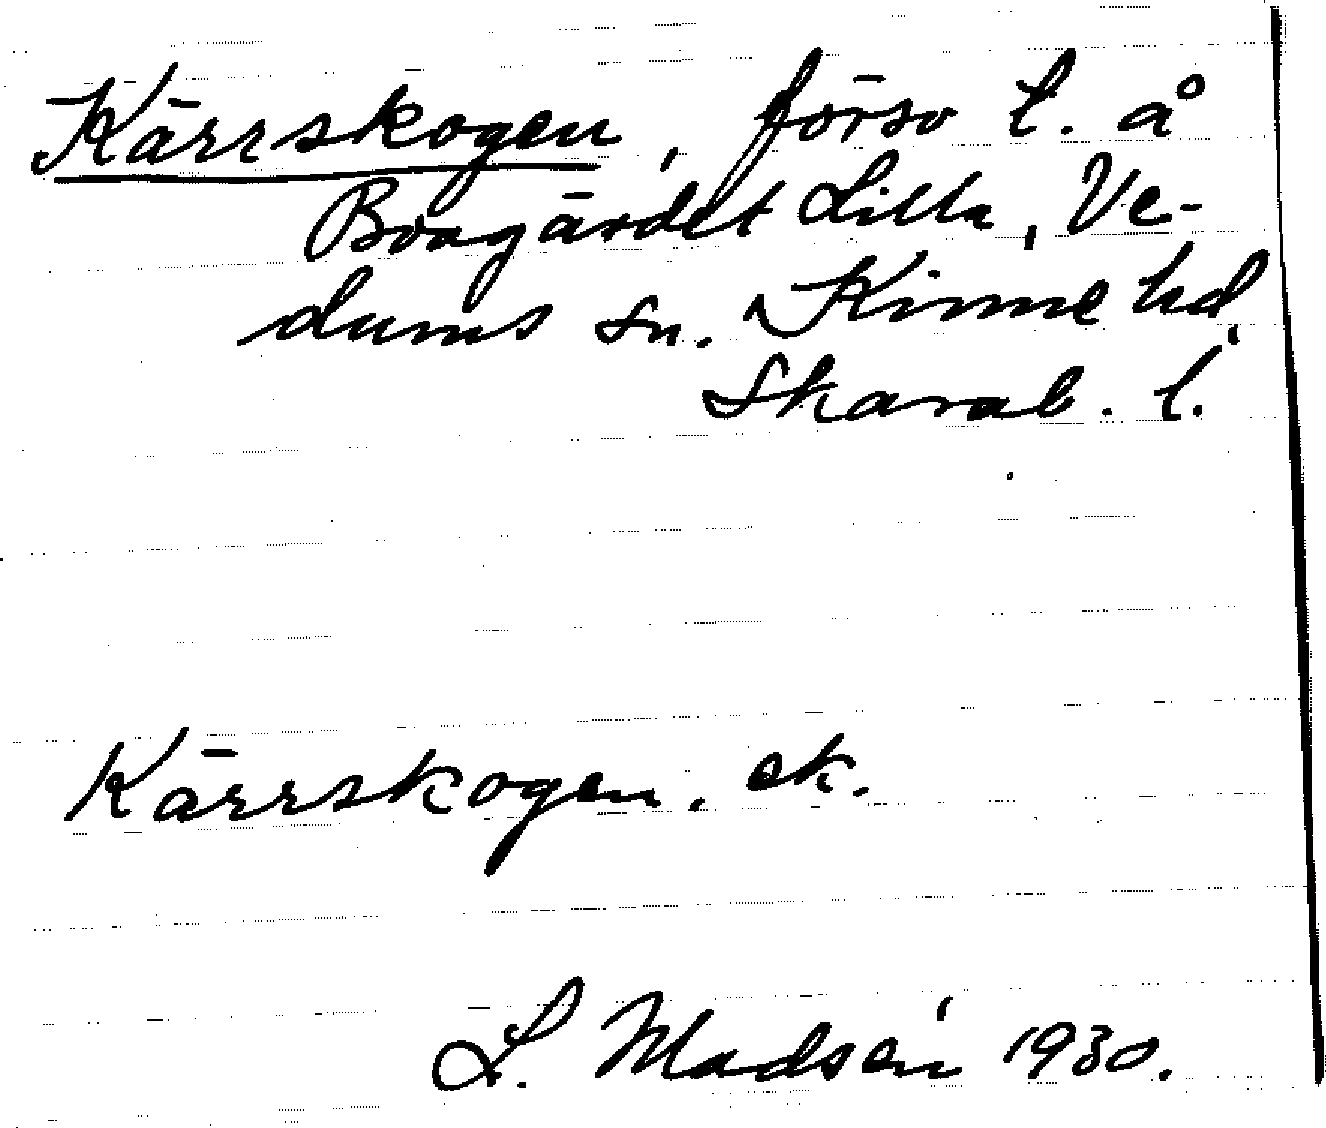 Kärrskogen, försv l. å
Bragärdet Lilla, Ve-
dums sn. Kinne hd,
Skarab. l.
Kärrskogen. ek.
L. Madsén 1930.